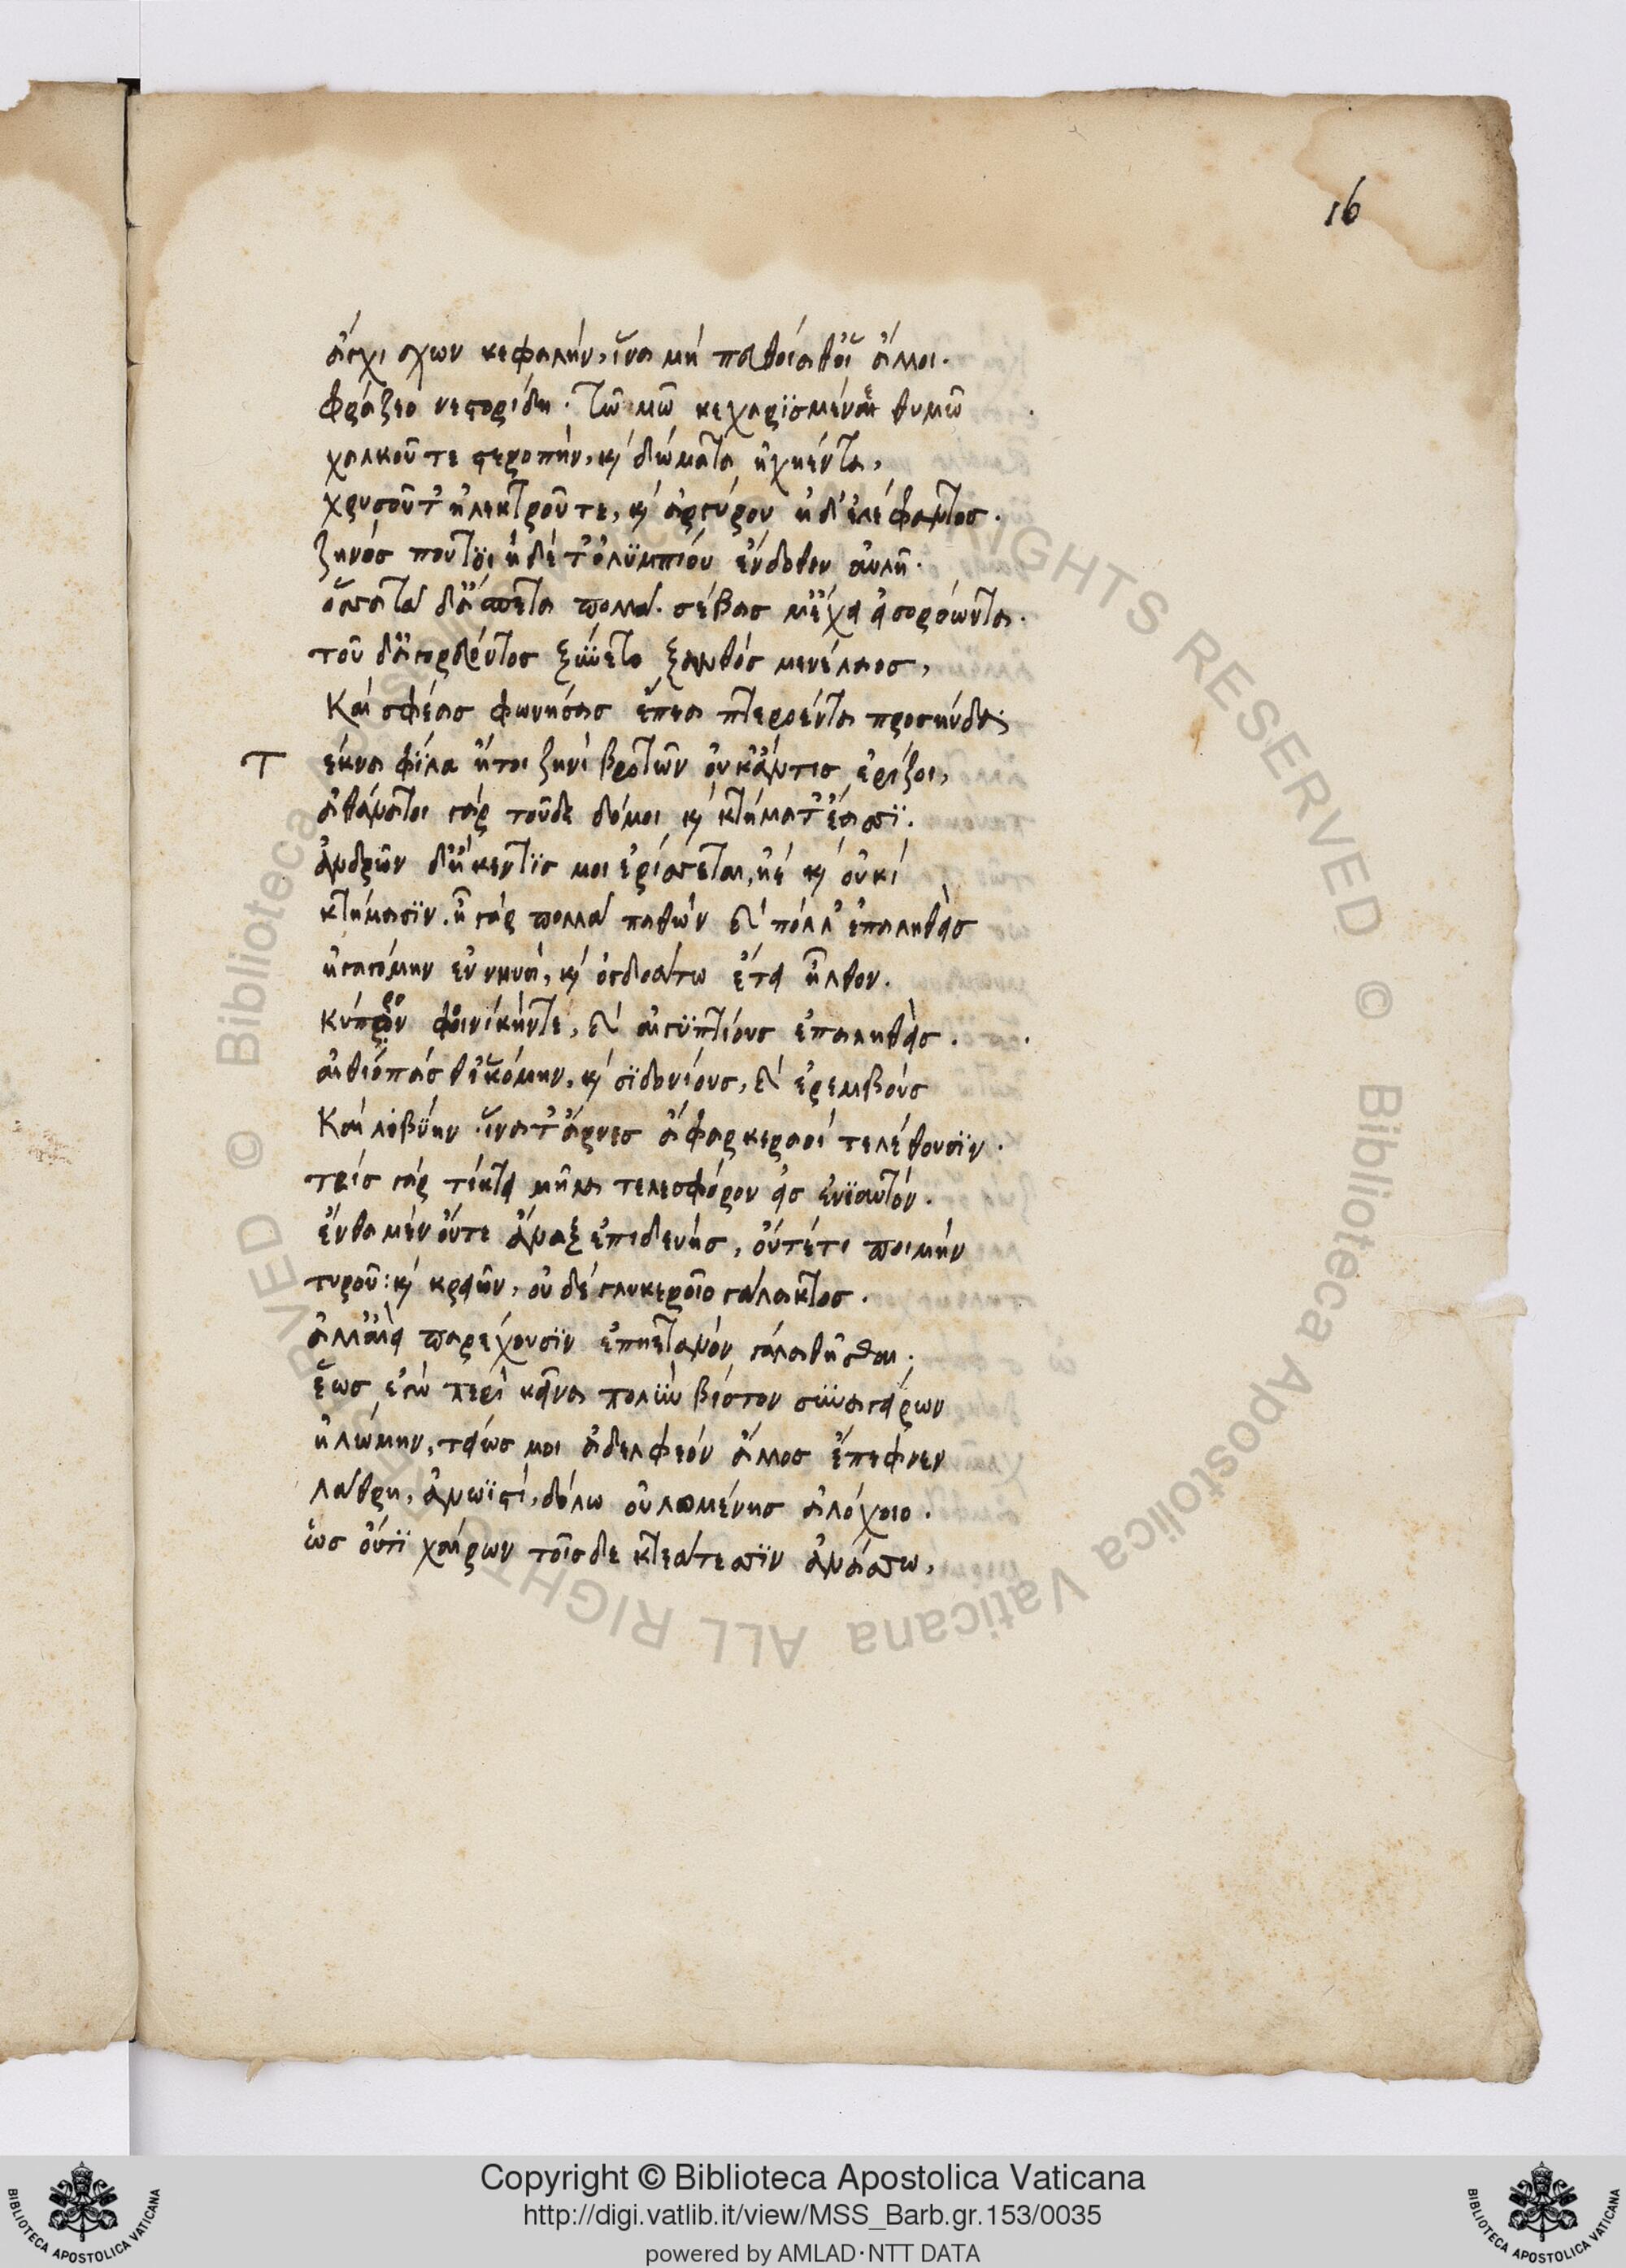 16
ἄγχι σχων κεφαλήν, ἵνα μή πευθοίαθ' οἵ ἄλλοι.
Φράζεο νεστορίδη. τῶ μῶ κεχαρϊσμένε θυμῶ
χαλκοῦ τε στεροπήν, κ' δώματα ἠχήεντα,
χρυσοῦ τ' ἠλεκτροῦ τε, κ' ἀργύρου ἠδ' ἐλέφαντος.
ζηνός που τϊ ἡδέ τ' ὀλϋμπίου ἔνδοθεν αὐλή.
ὅσσα τάδ' ἄσπετα πολλά. σέβας μ' ἔχει εἰσορόωντα.
τοῦ δ' ἀγορεύοντος ξϋνετο ξανθός μενέλαος,
Καί σφέας φωνήσας ἔπεα πτερόεντα προσηύδα.
Τ έκνα φίλα ἤτοι ζηνί βροτῶν οὐκ ἄν τις ἐρίζοι,
ἀθάνατοι γάρ τοῦδε δόμοι κ' κτήματ' ἔασϊ.
ἀνδρῶν δ' ἤ κεν τϊς μοι ἐρίσσεται, ἠέ κ' οὐκί
κτήμασϊν. ἦ γάρ πολλά παθών κ' πόλλ' ἐπαληθείς
ἠγαγόμην ἐν νηυσί, κ' ὀγδοάτω ἔτει ἦλθον.
κύπρον φοινίκήν τε, κ' αἰγϋπτίους ἐπαληθείς.
αἰθίοπάς θ' ἱκόμην, κ' σϊδονίους, κ' ἐρεμβούς
Καί λιβύην ἵνα τ' ἄρνες ἄφαρ κεραοί τελέθουσϊν.
τρίς γάρ τίκτει μῆλα τελεσφόρον εἰς ἐνϊαυτόν.
ἔνθα μέν οὔτε ἄναξ ἐπιδευής, οὔτέ τι ποιμήν
τυροῦ: κ' κρειῶν, οὐ δέ γλυκεροῖο γάλακτος.
ἀλλ' αἰεί παρέχουσϊν ἐπηετανόν γάλα θῆσθαι.
ἕως ἐγώ περί κεῖνα πολϋν βίοτον σϋναγείρων
ἠλώμην, τείως μοι ἀδελφεόν ἄλλος ἔπεφνεν
λάθρη, ἀνωϊστί, δόλω οὐλομένης ἀλόχοιο.
ὥς οὔτϊ χαίρων τοῖσδε κτεάτεσσϊν ἀνάσσω,
Copyright © Biblioteca Apostolica Vaticana
http://digi.vatlib.it/view/MSS_Barb.gr.153/0035
powered by AMLAD·NTT DATA